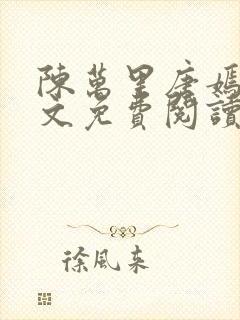 陳萬里唐嫣
文免費閱讀
徐風來